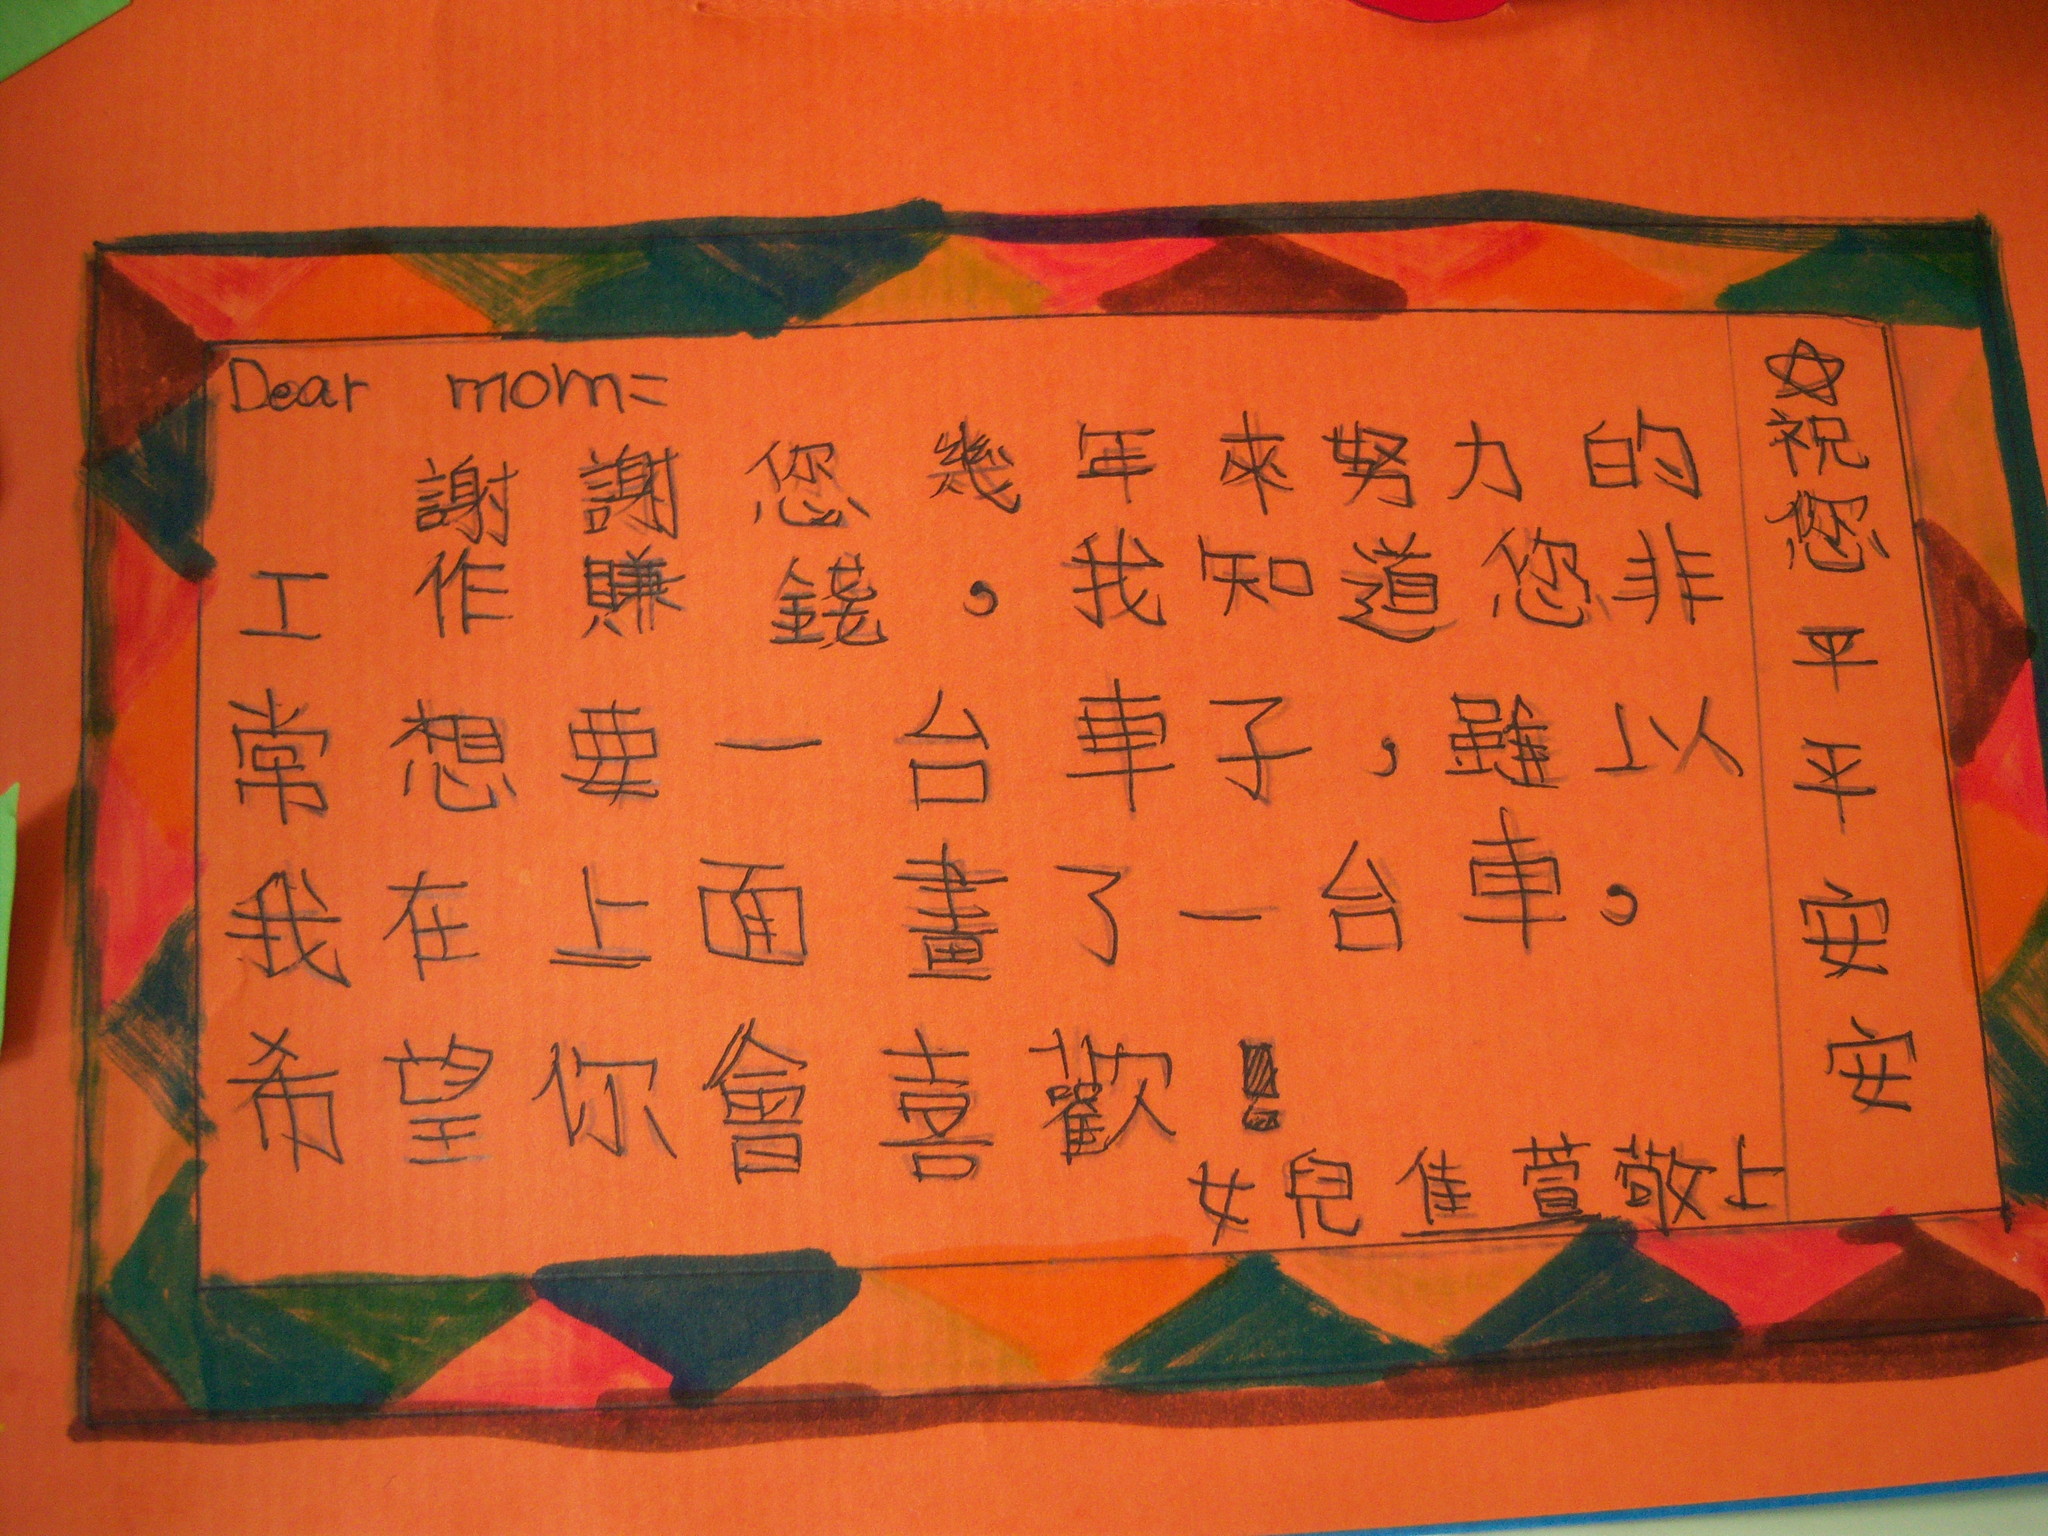 Dear mom=
謝謝您幾年來努力的
工作賺錢，我知道您非
常想要一台車子，雖以
我在上面畫了一台車，
希望你會喜歡！
女兒佳萱敬上
☆祝您平平安安